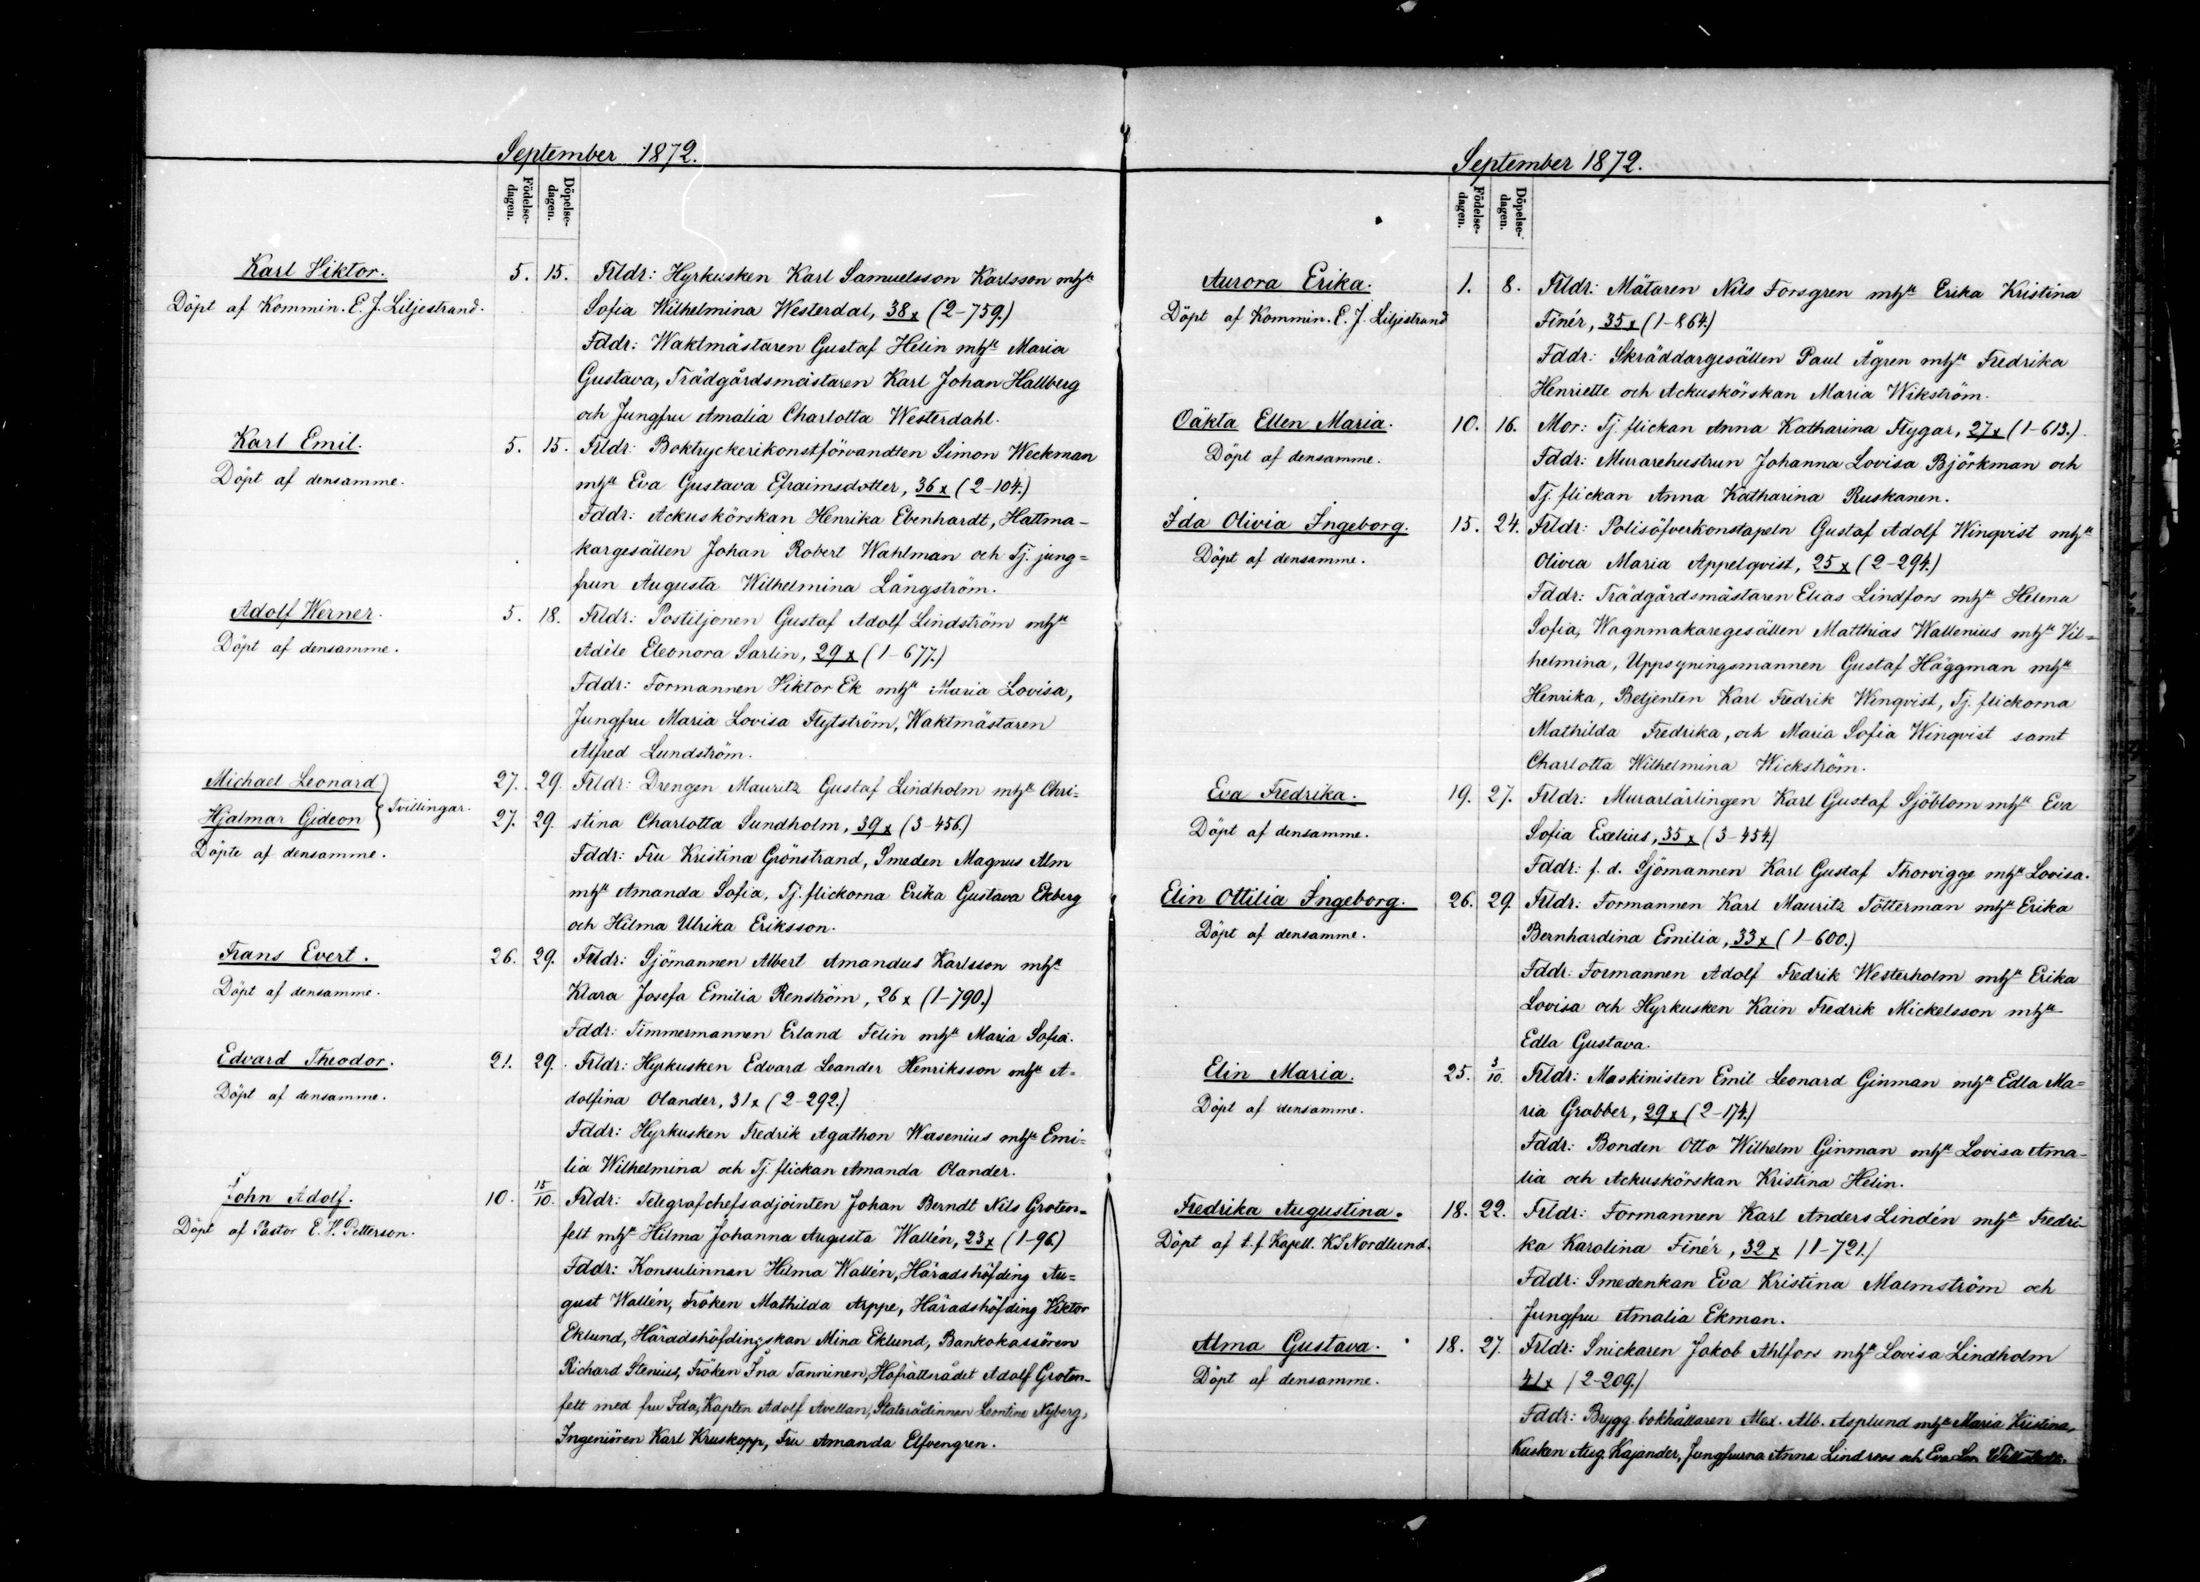 September 1872.
Födelse-dagen.
Döpelse-dagen.
Karl Viktor.
Döpt af Kommin. E. J. Liljestrand.
5. 15. Frldr: Hyrkusken Karl Samuelsson Karlsson mhu
Sofia Wilhelmina Westerdal, 38 x (2-759.)
Fddr: Waktmästaren Gustaf Helin mhu Maria
Gustava, Trädgårdsmästaren Karl Johan Hallberg
och Jungfru Amalia Charlotta Westerdahl.
Karl Emil.
Döpt af densamme.
5. 15. Frldr: Boktryckerikonstförvandten Simon Weckman
mhu Eva Gustava Efraimsdotter, 36 x (2-104.)
Fddr: Ackuskörskan Henrika Ebenhardt, Hattma-
kargesällen Johan Robert Wahlman och Tj. jung=
frun Augusta Wilhelmina Långström.
Adolf Werner.
Döpt af densamme.
5. 18. Frldr: Postiljonen Gustaf Adolf Lindström mhu
Adèle Eleonora Sarlin, 29 x (1-677.)
Fddr: Formannen Viktor Ek mhu Maria Lovisa,
Jungfru Maria Lovisa Flytström, Waktmästaren
Alfred Lundström.
Michael Leonard
Hjalmar Gideon } Tvillingar.
Döpte af densamme.
27. 29. Frldr: Drengen Mauritz Gustaf Lindholm mhu Chri-
27. 29. stina Charlotta Sundholm, 39 x (3-456.)
Fddr: Fru Kristina Grönstrand, Smeden Magnus Alm
mhu Amanda Sofia, Tj. flickorna Erika Gustava Ekberg
och Hilma Ulrika Eriksson.
Frans Evert.
Döpt af densamme.
26. 29. Frldr: Sjömannen Albert Amandus Karlsson mhu
Klara Josefa Emilia Renström, 26 x (1-790.)
Fddr: Timmermannen Erland Felin mhu Maria Sofia.
Edvard Theodor.
Döpt af densamme.
21. 29. Frldr: Hyrkusken Edvard Leander Henriksson mhu A=
dolfina Olander, 31 x (2-292.)
Fddr: Hyrkusken Fredrik Agathon Wasenius mhu Emi-
lia Wilhelmina och Tj. flickan Amanda Olander.
John Adolf.
Döpt af Pastor E. V. Petterson.
10. 15/10. Frldr: Telegrafchefsadjointen Johan Berndt Nils Groten=
felt mhu Hilma Johanna Augusta Wallén, 23 x (1-96.)
Fddr: Konsulinnan Hilma Wallén, Häradshöfding Au=
gust Wallén, Fröken Mathilda Arppe, Häradshöfding Viktor
Eklund, Häradshöfdingskan Mina Eklund, Bankokassören
Richard Stenius, Fröken Ina Tanninen, Hofrättsrådet Adolf Groten-
felt med fru Ida, Kapten Adolf Avellan, Statsrådinnan Leontine Nyberg,
Ingeniören Karl Kruskopp, Fru Amanda Elfvengren.
September 1872.
Födelse-dagen.
Döpelse-dagen.
Aurora Erika.
Döpt af Kommin. E. J. Liljestrand
1. 8. Frldr: Mätaren Nils Forsgren mhu Erika Kristina
Finér, 35 x (1-864.)
Fddr: Skräddargesällen Paul Ågren mhu Fredrika
Henriette och Ackuskörskan Maria Wikström.
Oäkta Ellen Maria.
Döpt af densamme.
10. 16. Mor: Tj. flickan Anna Katharina Flygar, 27 x (1-613.)
Fddr: Murarehustrun Johanna Lovisa Björkman och
Tj. flickan Anna Katharina Ruskanen.
Ida Olivia Ingeborg.
Döpt af densamme.
15. 24. Frldr: Polisöfverkonstapeln Gustaf Adolf Winqvist mhu
Olivia Maria Appelqvist, 25 x (2-294.)
Fddr: Trädgårdsmästaren Elias Lindfors mhu Helena
Sofia, Wagnmakaregesällen Matthias Wallenius mhu Vil=
helmina, Uppsyningsmannen Gustaf Häggman mhu
Henrika, Betjenten Karl Fredrik Winqvist, Tj. flickorna
Mathilda Fredrika, och Maria Sofia Winqvist samt
Charlotta Wilhelmina Wickström.
Eva Fredrika.
Döpt af densamme.
19. 27. Frldr: Murarlärlingen Karl Gustaf Sjöblom mhu Eva
Sofia Exelius, 35 x (3-454.)
Fddr: f. d. Sjömannen Karl Gustaf Thorvigge mhu Lovisa.
Elin Ottilia Ingeborg.
Döpt af densamme.
26. 29. Frldr: Formannen Karl Mauritz Tötterman mhu Erika
Bernhardina Emilia, 33 x (1-600.)
Fddr: Formannen Adolf Fredrik Westerholm mhu Erika
Lovisa och Hyrkusken Kain Fredrik Mickelsson mhu
Edla Gustava.
Elin Maria.
Döpt af densamme.
25. 3/10. Frldr: Maskinisten Emil Leonard Ginman mhu Edla Ma=
ria Grabber, 29 x (2-174.)
Fddr: Bonden Otto Wilhelm Ginman mhu Lovisa Ama-
lia och Ackuskörskan Kristina Helin.
Fredrika Augustina.
Döpt af t. f. Kapell. K S Nordlund.
18. 22. Frldr: Formannen Karl Anders Lindén mhu Fredri-
ka Karolina Finér, 32 x (1-721.)
Fddr: Smedenkan Eva Kristina Malmström och
Jungfru Amalia Ekman.
Alma Gustava.
Döpt af densamme.
18. 27. Frldr: Snickaren Jakob Ahlfors mhu Lovisa Lindholm
41 x (2-209.)
Fddr: Brygg. bokhållaren Alex. Alb. Asplund mhu Maria Kristina,
Kusken Aug. Kajander, Jungfrurna Anna Lindroos och Eva